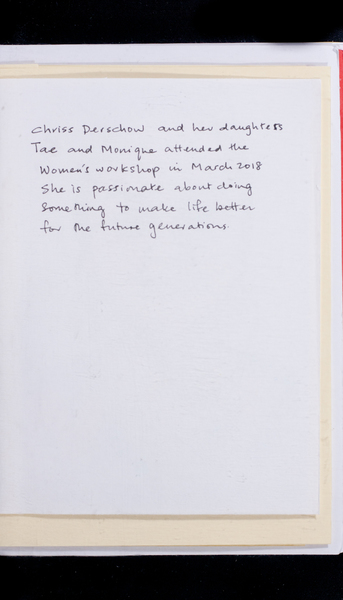 Chriss Derschow and her daughters
Tae and Monique attended the
Women's workshop in March 2018
She is passionate about doing
something to make life better
for the future generations.